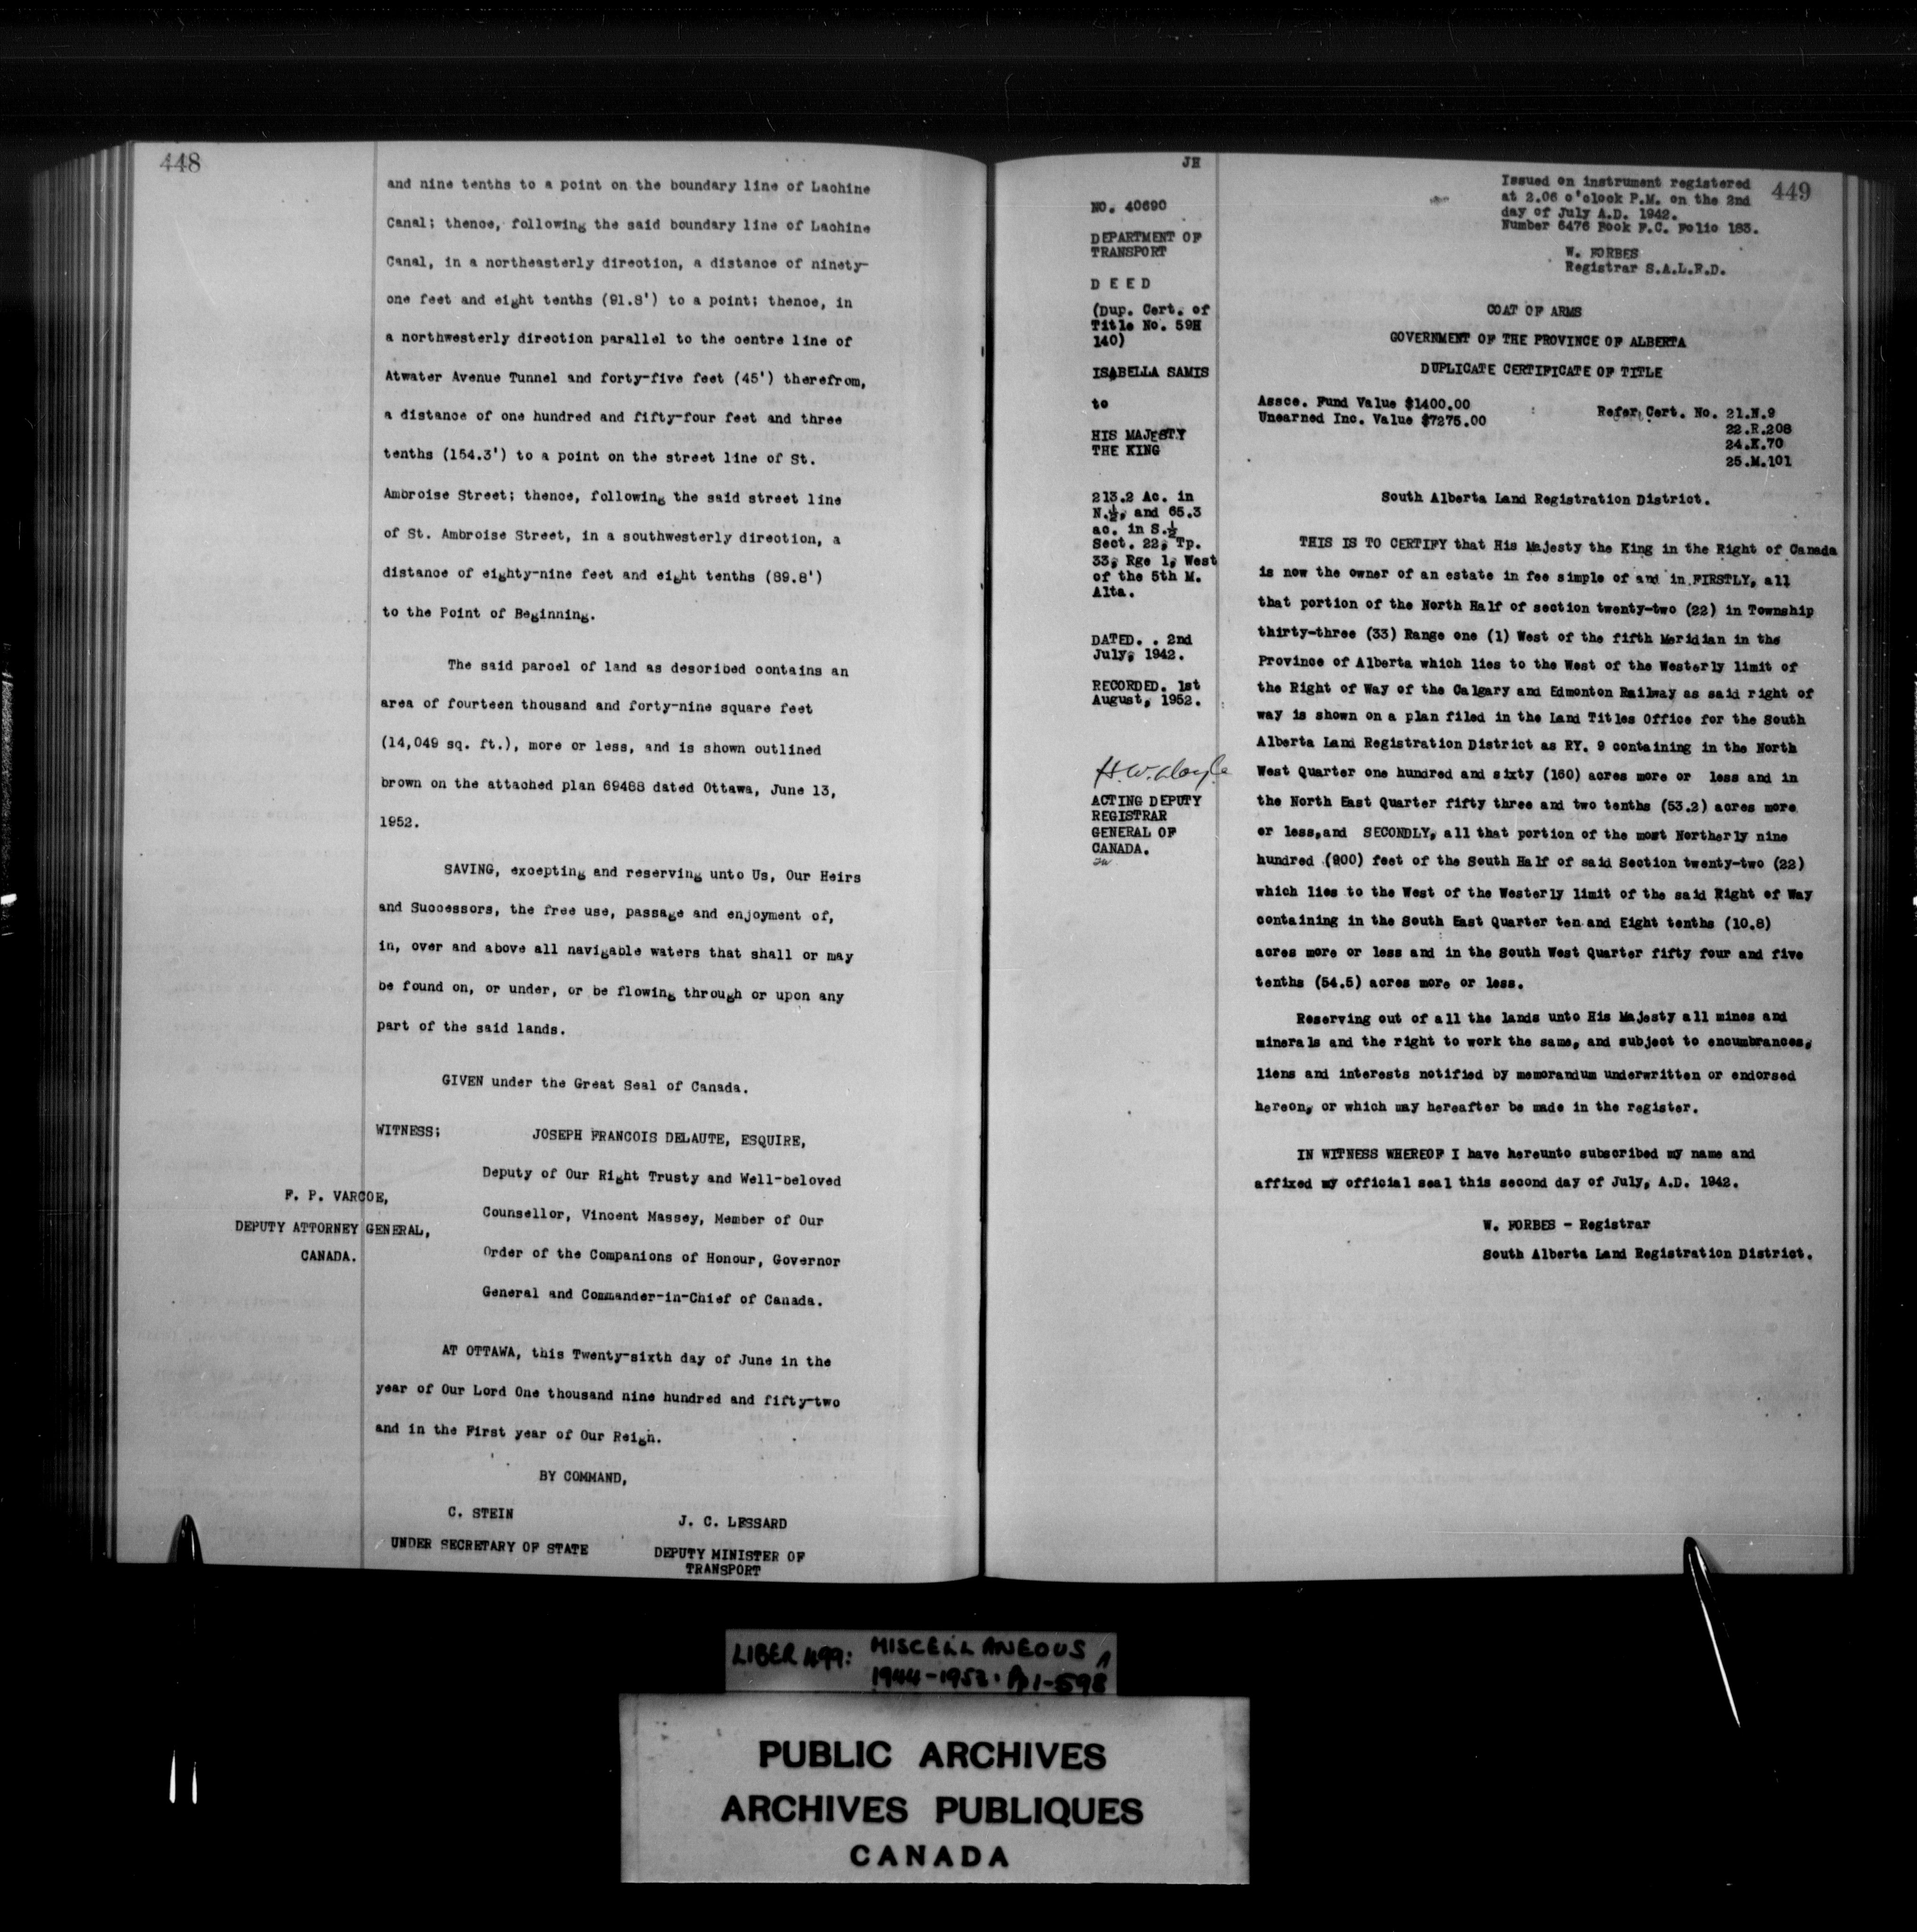 448
and nine tenths to a point on the boundary line of Lachine
Canal; thence, following the said boundary line of Lachine
Canal, in a northeasterly direction, a distance of ninety-
one feet and eight tenths (91.8') to a point; thence, in
a northwesterly direction parallel to the centre line of
Atwater Avenue Tunnel and forty-five feet (45') therefrom,
a distance of one hundred and fifty-four feet and three
tenths (154.3') to a point on the street line of St.
Ambroise Street; thence, following the said street line
of St. Ambroise Street, in a southwesterly direction, a
distance of eighty-nine feet and eight tenths (89.8')
to the Point of Beginning.
The said parcel of land as described contains an
area of fourteen thousand and forty-nine square feet
(14,049 sq. ft.), more or less, and is shown outlined
brown on the attached plan 69488 dated Ottawa, June 13,
1952.
SAVING, excepting and reserving unto Us, Our Heirs
and Successors, the free use, passage and enjoyment of,
in, over and above all navigable waters that shall or may
be found on, or under, or be flowing through or upon any
part of the said lands.
GIVEN under the Great Seal of Canada.
WITNESS; JOSEPH FRANCOIS DELAUTE, ESQUIRE,
Deputy of Our Right Trusty and Well-beloved
Counsellor, Vincent Massey, Member of Our
Order of the Companions of Honour, Governor
General and Commander-in-Chief of Canada.
F. P. VARCOE,
DEPUTY ATTORNEY GENERAL,
CANADA.
AT OTTAWA, this Twenty-sixth day of June in the
year of Our Lord One thousand nine hundred and fifty-two
and in the First year of Our Reign.
BY COMMAND,
C. STEIN
UNDER SECRETARY OF STATE
J. C. LESSARD
DEPUTY MINISTER OF
TRANSPORT
JH
NO. 40690
DEPARTMENT OF
TRANSPORT
D E E D
(Dup. Cert. of
Title No. 59H
140)
ISABELLA SAMIS
to
HIS MAJESTY
THE KING
213.2 Ac. in
N.½, and 65.3
ac. in S.½
Sect. 22, Tp.
33, Rge 1, West
of the 5th M.
Alta.
DATED. . 2nd
July, 1942.
RECORDED. 1st
August, 1952.
H.W. Doyle
ACTING DEPUTY
REGISTRAR
GENERAL OF
CANADA.
449
Issued on instrument registered
at 2.06 o'clock P.M. on the 2nd
day of July A.D. 1942.
Number 6476 Book F.C. Folio 183.
W. FORBES
Registrar S.A.L.R.D.
COAT OF ARMS
GOVERNMENT OF THE PROVINCE OF ALBERTA
DUPLICATE CERTIFICATE OF TITLE
Assce. Fund Value $1400.00
Unearned Inc. Value $7275.00
Refer Cert. No. 21.N.9
22.R.208
24.K.70
25.M.101
South Alberta Land Registration District.
THIS IS TO CERTIFY that His Majesty the King in the Right of Canada
is now the owner of an estate in fee simple of and in FIRSTLY, all
that portion of the North Half of section twenty-two (22) in Township
thirty-three (33) Range one (1) West of the fifth Meridian in the
Province of Alberta which lies to the West of the Westerly limit of
the Right of Way of the Calgary and Edmonton Railway as said right of
way is shown on a plan filed in the Land Titles Office for the South
Alberta Land Registration District as RY. 9 containing in the North
West Quarter one hundred and sixty (160) acres more or less and in
the North East Quarter fifty three and two tenths (53.2) acres more
or less, and SECONDLY, all that portion of the most Northerly nine
hundred (900) feet of the South Half of said Section twenty-two (22)
which lies to the West of the Westerly limit of the said Right of Way
containing in the South East Quarter ten and Eight tenths (10.8)
acres more or less and in the South West Quarter fifty four and five
tenths (54.5) acres more or less.
Reserving out of all the lands unto His Majesty all mines and
minerals and the right to work the same, and subject to encumbrances,
liens and interests notified by memorandum underwritten or endorsed
hereon, or which may hereafter be made in the register.
IN WITNESS WHEREOF I have hereunto subscribed my name and
affixed my official seal this second day of July, A.D. 1942.
W. FORBES - Registrar
South Alberta Land Registration District.
LIBER 499: MISCELLANEOUS
1944-1952. Pp 1-598
PUBLIC ARCHIVES
ARCHIVES PUBLIQUES
CANADA